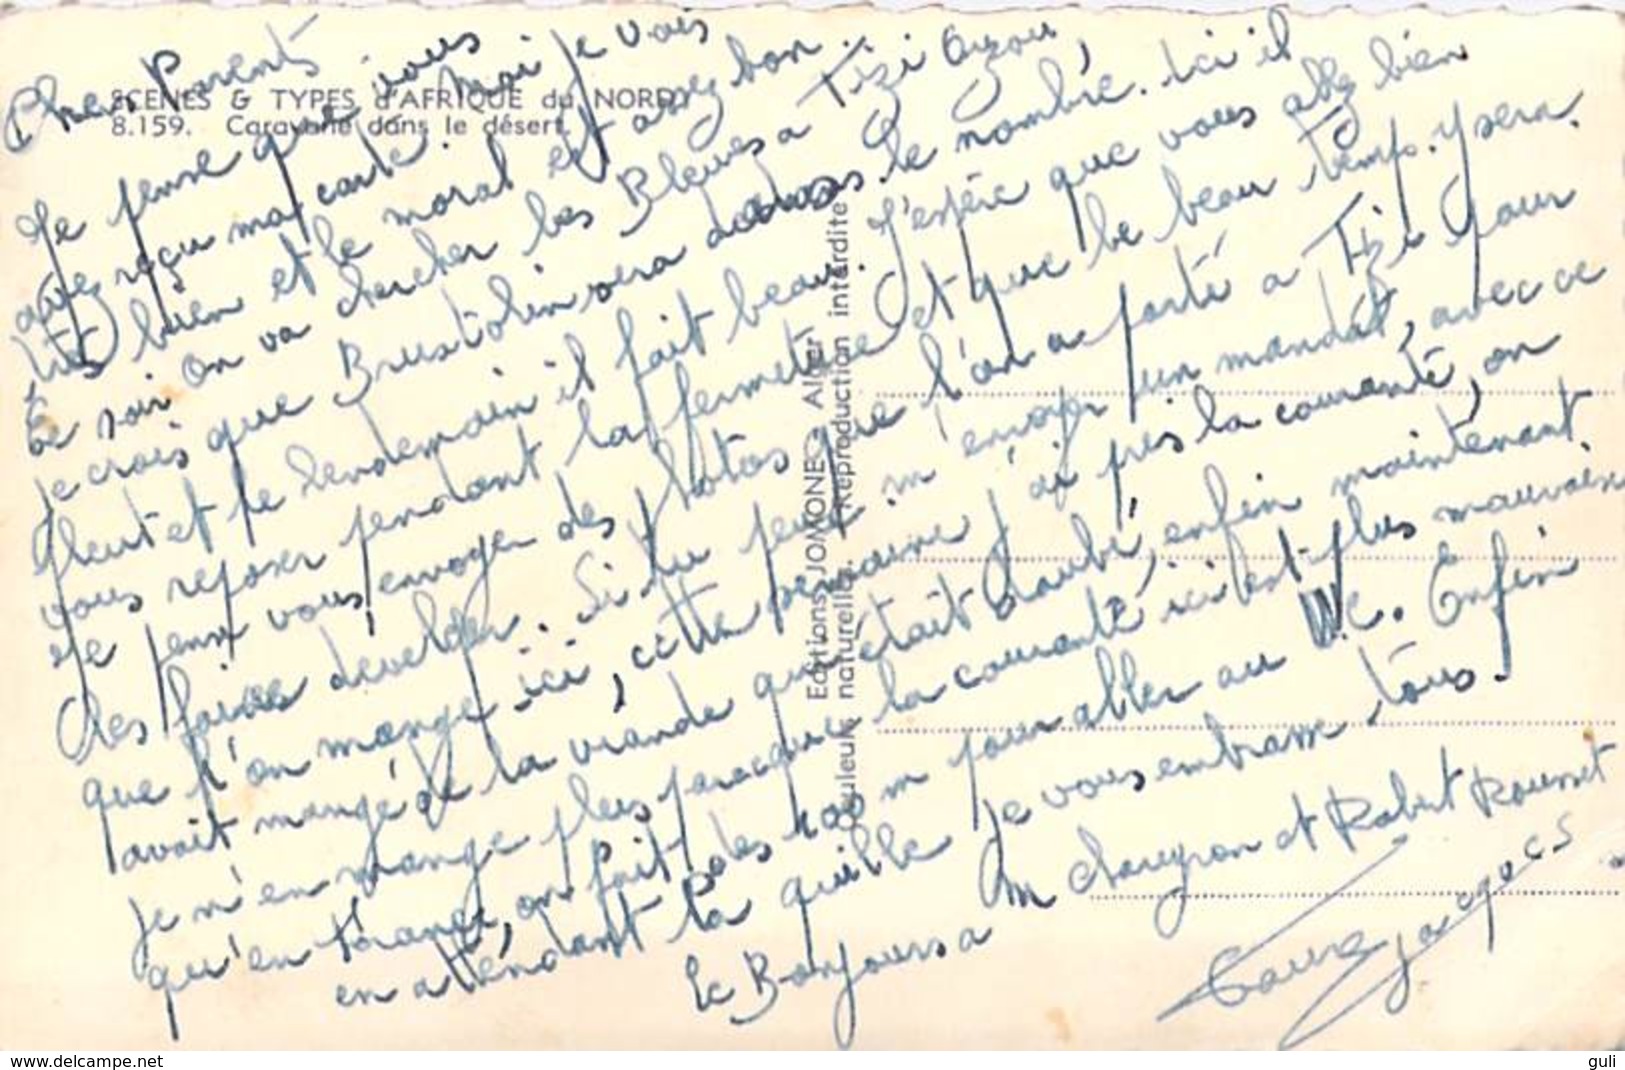 Chers Parents
SCENES & TYPES d'AFRIQUE du NORD
8.159. Caravane dans le désert.
Je pense que vous
avez reçu ma carte. Moi je vais
très bien et le moral est assez bon.
Ce soir on va chercher les Bleues a Tizi Ouzou
Je crois que Brustolin sera dans le nombre. Ici il
pleut et le lendemain il fait beau. J'espère que vous allez bien
vous reposer pendant la fermeture et que le beau temps y sera.
Je peux vous envoyer des photos que l'on a porté a Tizi pour
les faires développer. Si tu peux m'envoyer un mandat, avec ce
que l'on mange ici, cette semaine j'ai pris la courante, on
avait mangé de la viande qui était daubé, enfin maintenant
je n'en mange plus parceque la courante ici est plus mauvaise
qu'en France, on fait des 100 m pour aller au W.C. Enfin
en attendant la quille je vous embrasse tous.
le Bonjours a M et Robert Rousset
Jacques
Editions JOMONE - Alger
Couleurs naturelles. (Reproduction interdite)
www.delcampe.net
guli